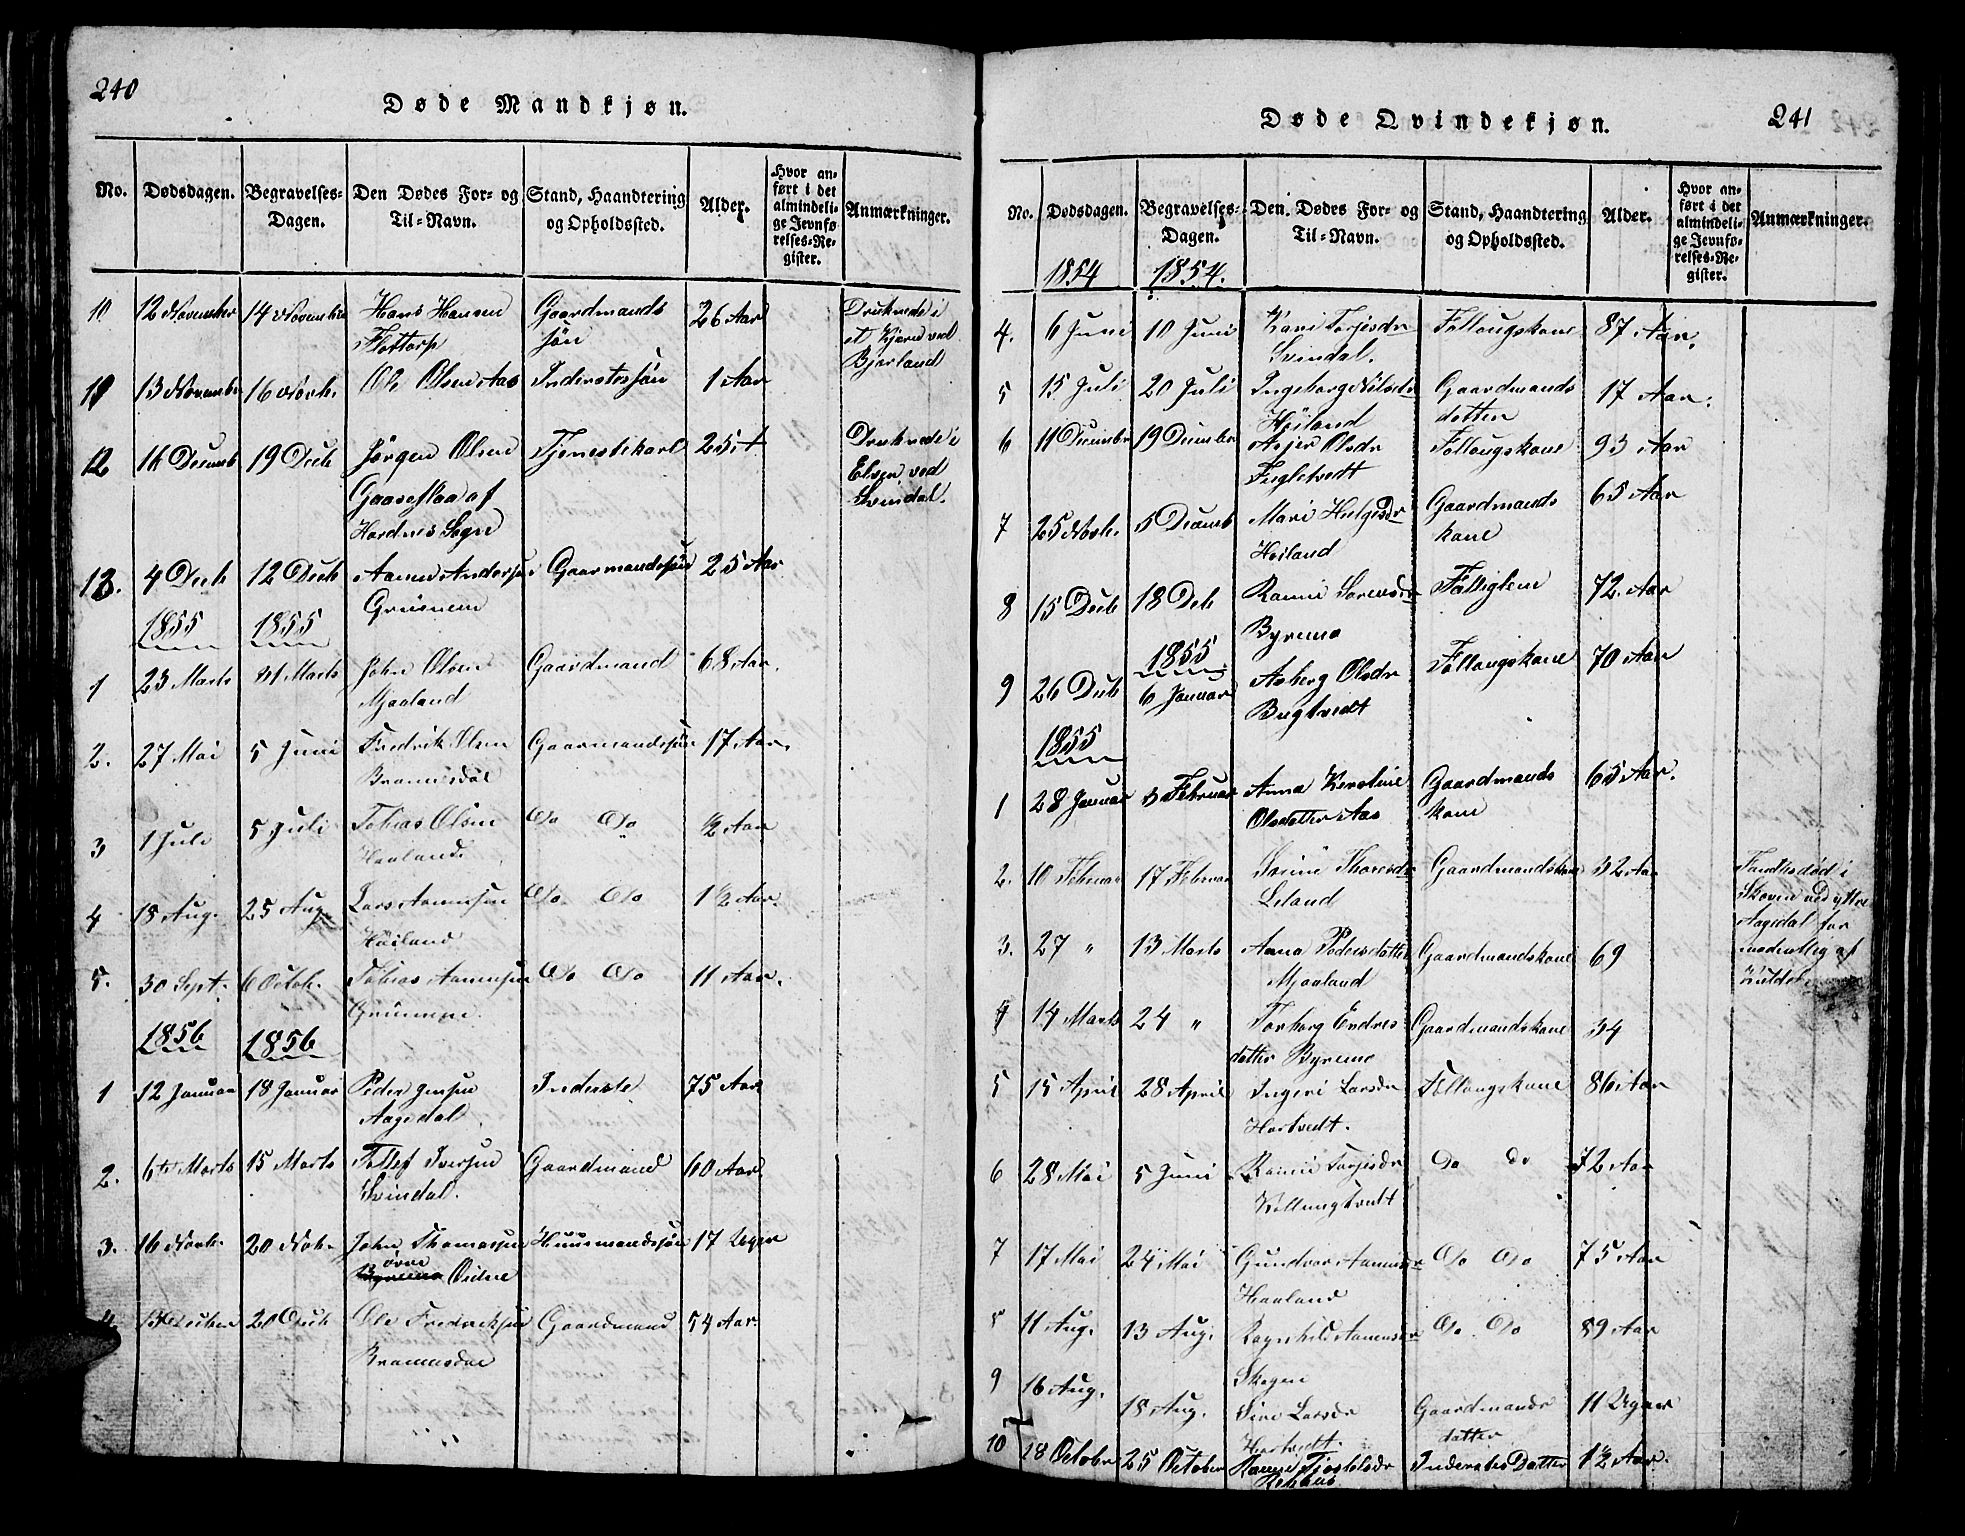 240
Døde Mandkjøn.
No. Dødsdagen. Begravelses-Dagen. Den Dødes For- og Til-Navn. Stand, Haandtering og Opholdssted. Alder. Hvor anført i det almindelige Jevnførelses-Register. Anmærkninger.
10 12 November 14 November Hans Hansen Gaardmands 26 Aar Druknede i
Flottorp søn et Kjærn ved
Bjerland
11 13 November 16 Novb. Ole Olsen Aas Inderstes søn 1 Aar
12 16 Decemb 19 Decb Jørgen Olsen Tjenestekarl 25 Druknede i
Gaaseflaa af Elven ved
Hordnes Sogn Svindal.
13. 4 Decb 12 Decb Aanen Andersen Gaarmandssøn 25 Aar
1855 1855
1 23 Marts 31 Marts John Olsen Gaardmand 68 Aar.
Mjaaland
2. 27 Mai 5 Juni Fredrik Olsen Gaarmandssøn 17 Aar.
3 1 Juli 5 Juli Tobias Olsen Do Do ½ Aar
Haaland
4 18 Aug. 25 Aug. Lars Aanensen Do Do 1½ Aar.
Høiland
5. 30 Sept. 6 Octob. Tobias Aanensen Do Do 11 Aar.
1856 1856
1 12 Januar 18 Januar Peder Jensen Inderste 75 Aar
Aagedal
2. 6te Marts 15 Marts Tollef Iversen Gaardmand 60 Aar
Svindal.
3. 16 Novb. 20 Nob. John Thomassen Huusmandssøn 17 Uger
øvre
Byremo Øidne
4 13 Decbr 20 Decb Ole Fredriksen Gaardmand 54 Aar
241
Døde Qvindekjøn.
No. Dødsdagen. Begravelses-Dagen. Den Dødes For- og Til-Navn. Stand, Haandtering og Opholdssted. Alder. Hvor anført i det almindelige Jevnførelses-Register. Anmærkninger.
1854 1854.
4. 6 Juni 10 Juni Kari Torjesdr Føllaugskone 87 Aar.
Svindal.
5 15 Juli 20 Juli Ingeborg Nilsdr Gaardmands 17 Aar.
Høiland datter
6 11 December 19 December Asjer Olsdr Føllaugskone 93 Aar
Fugletvedt
7 25 Novb. 5 Decemb Mari Helgesdr Gaardmands 65 Aar
Høiland kone
8 15 Decb 18 Deb Ranni Sørensdr Fattiglem 72. Aar
Byremo
1855
9 26 Decb 6 Januar Asberg Olsdr Føllaugskone 70 Aar
1855
1 28 Januar 3 Februar Anna Kerstine Gaardmands 65 Aar.
Olsdatter Aas kone
2. 10 Februar 17 Februar Sirine Thoresdr Gaardmandskone 32 Aar Fandtes død i
Leland Skoven ved ytre
Aagedal for
3. 27 " 13 Marts Anna Pedersdatter Gaardmandskone 69
Mjaaland Kulde
4 14 Marts 24 " Torborg Endres Gaardmandskone 34
datter Byremo
5 15 April 28 April Ingeri Larsdr Føllaugskone 86 Aar
Hortvedt.
6 28 Mai 5 Juni Ranni Torjesdr Do do 72 Aar
7 17 Mai 24 Mai Gundvor Aanensdr Do Do 75 Aar
Haaland
8 11 Aug. 13 Aug. Ragnhild Aanensdr Do Do 89 Aar
Skogen
9 16 Aug. 18 Aug. Siri Larsdr Gaardmands 11 Uger
Hortvedt. datter
10 18 October 25 October Tjostolsdr Inderstes Datter 1½ Aar.